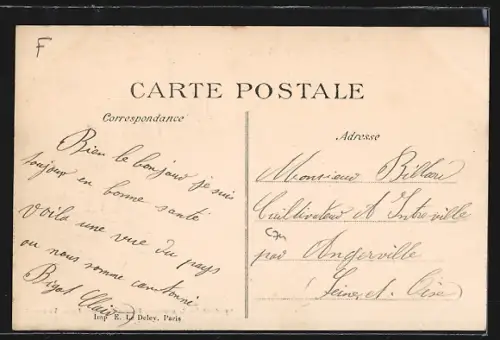 F
CARTE POSTALE
Correspondance
Adresse
Bien le bonjour je suis
toujour en bonne santé
voila une vue du pays
ou nous somme cantonné
Bigot
Monsieur Billard
Cultivateur A Intreville
par Angerville
Seine et Oise
Imp. E. Le Deley, Paris